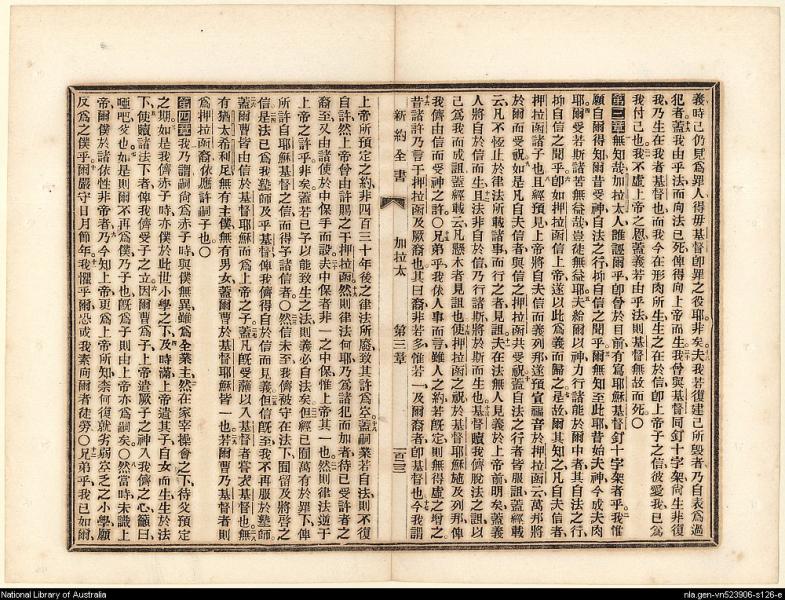 義時己仍見為罪人得毋基督即罪之役耶非矣夫我若復建己所毀者乃自表為過
犯者蓋我由乎法而向法已死俾得向上帝而生我曾與基督同釘十字架尚生非復
我乃生在我者基督也而我今在形肉所生生之在於信即上帝子之信彼愛我己為
我付己也我不虛上帝之恩蓋義若由乎法則基督無故而死〇
第三章無知哉加拉太人誰誑爾乎即曾於目前有寫耶穌基督釘十字架者乎我惟
願自爾得知爾昔受神自法之行抑自信之聞乎爾無知至此耶昔始夫神今成夫肉
耶爾受若斯諸苦無益哉豈徒無益耶夫給爾以神力行諸能於爾中者其自法之行
抑自信之聞乎即如押拉函信上帝遂以此為義而歸之是故爾其知之凡自夫信者
押拉函諸子也且經預見上帝將自夫信而義列邦遂預宣福音於押拉函云萬邦將
於爾而受祝如是凡自夫信者與信之押拉函共受祝蓋自法之行者皆服詛蓋經載
云凡不恆止於律法所載諸事而行之者見詛夫在法無人見義於上帝前明矣蓋義
人將自於信而生且法非自於信乃行諸斯將於斯而生也基督贖我儕脫法之詛以
己為我而成詛蓋經載云凡懸木者見詛也使押拉函之祝於基督耶穌施及列邦俾
我儕由信而受神之許〇兄弟乎我依人事而言雖人之約若既定則無得虛之增之
昔諸許乃言于押拉函及厥裔也其曰裔非若多惟若一及爾裔者即基督也今我謂
新約全書
加拉太
第三章
一百三三
上帝所預定之約非四百三十年後之律法所廢致其許為空蓋嗣業若自法則不復
自許然上帝曾由許賜之于押拉函然則律法何耶乃為諸犯而加者待已受許者之
裔至又由諸使於中保手而設夫中保者非一之中保惟上帝其一也然則律法逆于
上帝之許乎非矣蓋若已予以能致生之法則義必自法矣但經已囿萬有於罪下俾
所許自耶穌基督之信而得予諸信者〇然信未至我儕被守在法下囿留及將啓之
信是法已為我塾師及乎基督俾我儕得自於信而見義但信既至我不再服於塾師
蓋爾曹皆由信於基督耶穌而為上帝之子蓋凡既受蘸以入基督者嘗衣基督也無
有猶太希利尼無有主僕無有男女蓋爾曹於基督耶穌皆一也若爾曹乃基督者則
為押拉函裔依應許嗣子也〇
第四章我乃謂嗣尚為赤子時與僕無異雖為全業主然在家宰操會之下待父預定
之期如是我儕赤子時亦僕於此世小學之下及時滿上帝遣其子自女而生生於法
下使贖諸法下者俾我儕受子之立因爾曹為子上帝遣厥子之神入我儕之心籲曰
唖吧父也如是則爾不再為僕乃子也既為子則由上帝亦為嗣矣〇然當時未識上
帝爾僕於諸依性非帝者乃今知上帝更為上帝所知柰何復就劣弱空乏之小學願
反為之僕乎爾嚴守日月節年我懼乎爾恐或我素向爾者徒勞〇兄弟乎我已如爾
National Library of Australia
nla.gen-vn523906-s126-e